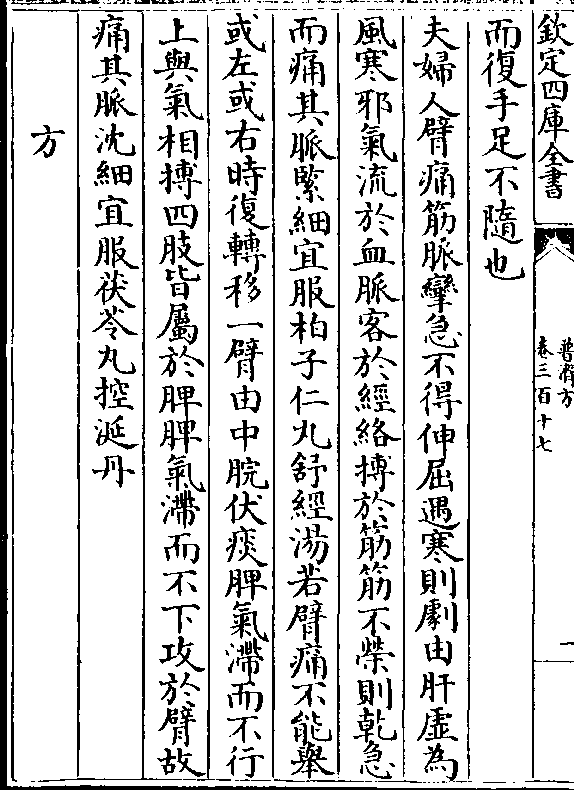 欽定四庫全書
普濟方
卷三百十七
一
而復手足不隨也
夫婦人臂痛筋脈攣急不得伸屈遇寒則劇由肝虛為
風寒邪氣流於血脈客於經絡搏於筋筋不榮則乾急
而痛其脈緊細宜服柏子仁丸舒經湯若臂痛不能舉
或左或右時復轉移一臂由中脘伏痰脾氣滯而不行
上與氣相搏四肢皆屬於脾脾氣滯而不下攻於臂故
痛其脈沈細宜服茯苓丸控涎丹
方